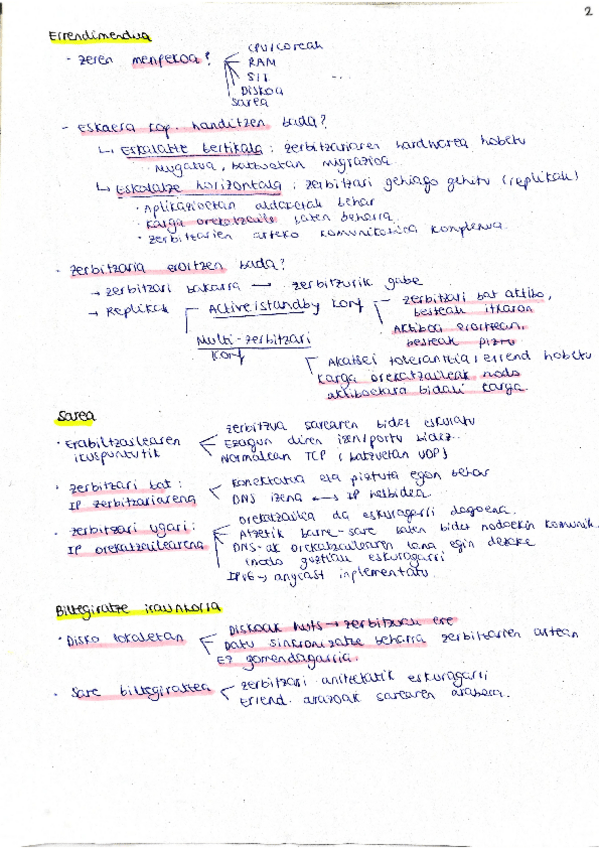 2
Errendimendua
· Zeren menpekoa?
CPU/coreak
RAM
S.E
Diskoa
Sarea
- Eskaera kop. handitzen bada?
↳ Eskalatze bertikala : zerbitzariaren hardwarea hobetu
Mugatua, batzuetan migrazioa.
↳ Eskalatze horizontala : zerbitzari gehiago gehitu (replikak)
· Aplikazioetan aldaketak behar
· Karga orekatzaile baten beharra
· Zerbitzarien arteko komunikazioa konplexua.
· Zerbitzaria erortzen bada?
→ Zerbitzari bakarra → zerbitzurik gabe
→ Replikak
Active/standby konf
zerbitzari bat aktibo,
besteak itxaron
Aktiboa erortzean,
besteak piztu
Multi-zerbitzari
konf
Akatsei tolerantzia, errend hobetu
Karga orekatzaileak nodo
aktiboetara bidali karga.
Sarea
· Erabiltzailearen
ikuspuntutik
Zerbitzua sarearen bidez eskuratu
Ezagun diren izen/portu bidez..
Normalean TCP (batzuetan UDP)
· Zerbitzari bat:
IP zerbitzariarena
Konektatua eta piztuta egon behar
DNS izena ⟷ IP helbidea.
· Zerbitzari ugari:
IP orekatzailearena
Orekatzailea da eskuragarri dagoena.
Atzetik barne-sare baten bidez nodoekin komunik.
DNS-ak orekatzailearen lana egin dezake
(nodo guztiak eskuragarri
IPv6 → anycast inplementatu
Biltegiratze iraunkorra
· Disko lokaletan
Diskoak huts → zerbitzuak ere
Datu sinkronizatze beharra zerbitzarien artean
Ez gomendagarria.
· Sare biltegiratzea
Zerbitzari anitzetatik eskuragarri
Errend. arazoak sarearen arabera.